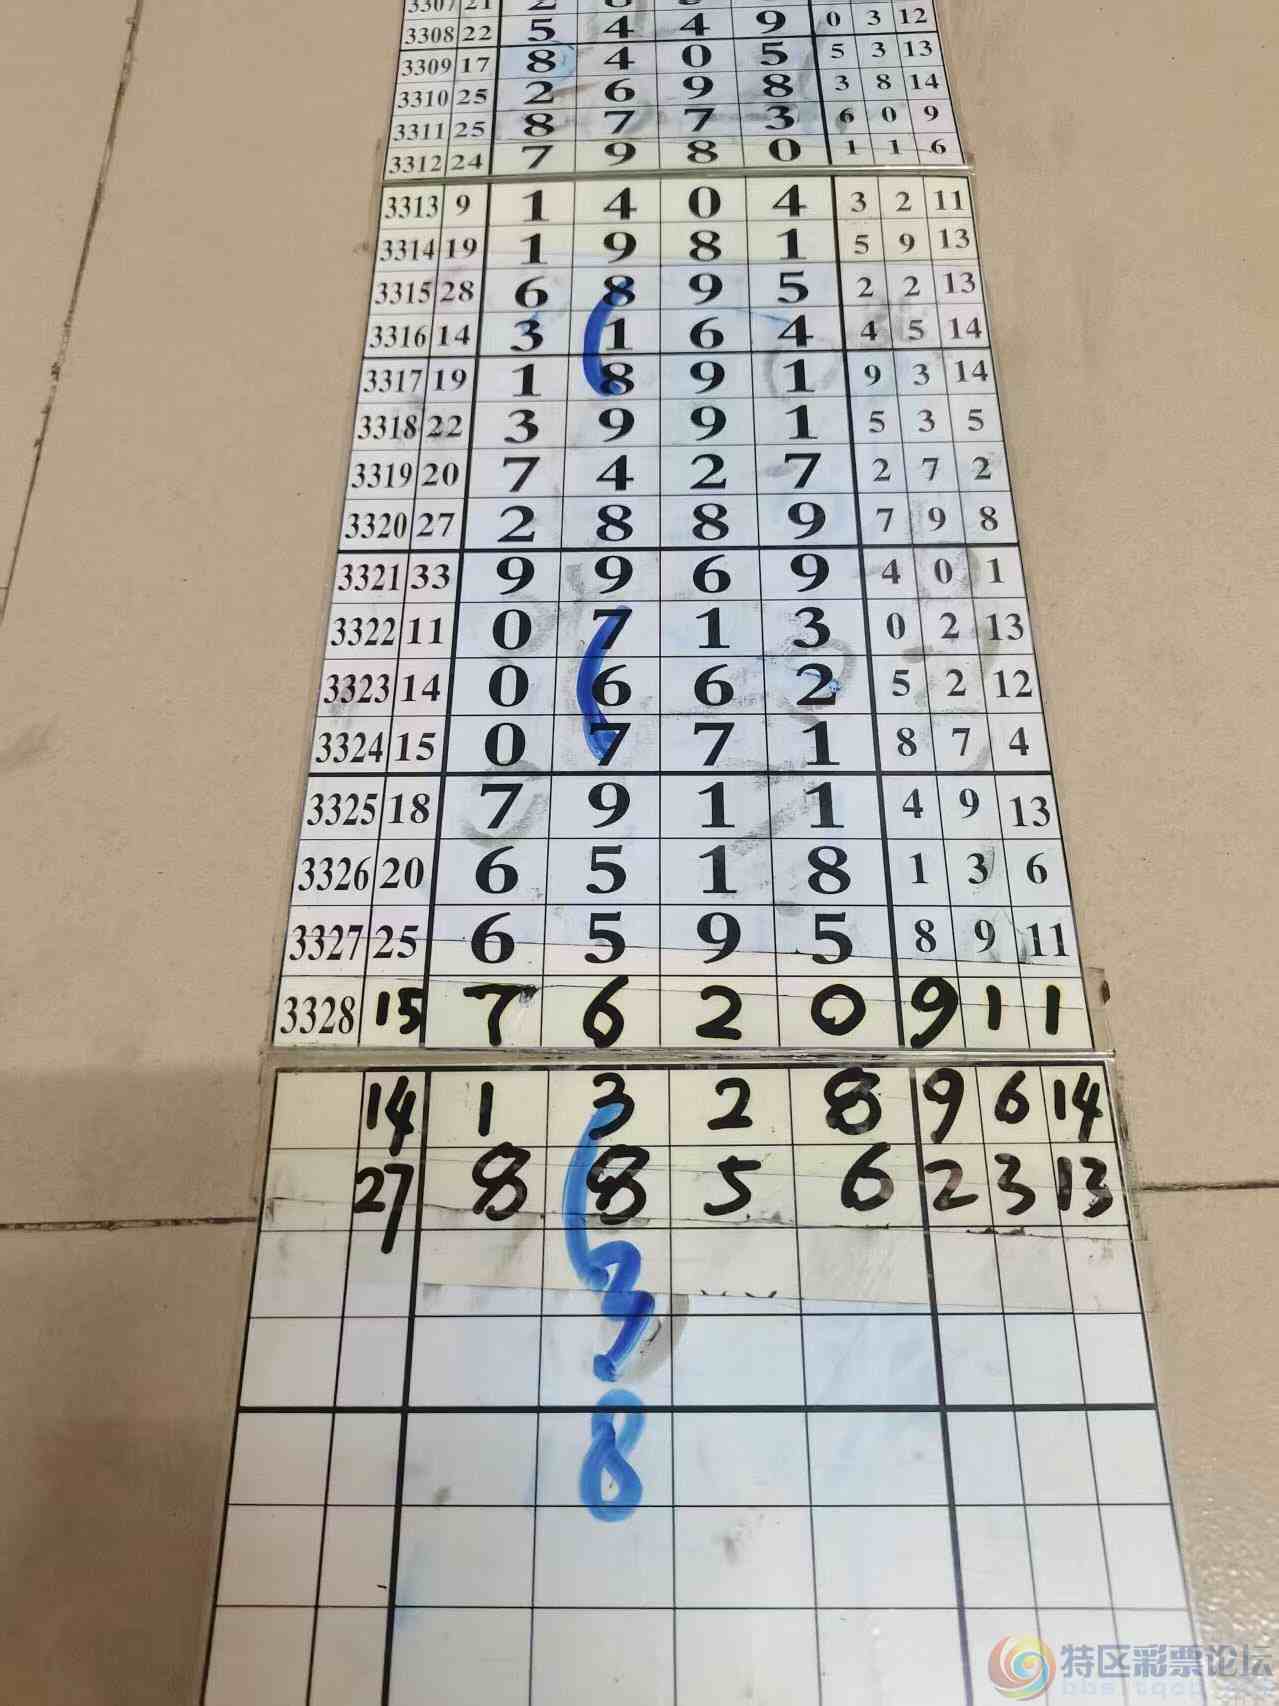 3307 21
3308 22 5 4 4 9 0 3 12
3309 17 8 4 0 5 5 3 13
3310 25 2 6 9 8 3 8 14
3311 25 8 7 7 3 6 0 9
3312 24 7 9 8 0 1 1 6
3313 9 1 4 0 4 3 2 11
3314 19 1 9 8 1 5 9 13
3315 28 6 8 9 5 2 2 13
3316 14 3 1 6 4 4 5 14
3317 19 1 8 9 1 9 3 14
3318 22 3 9 9 1 5 3 5
3319 20 7 4 2 7 2 7 2
3320 27 2 8 8 9 7 9 8
3321 33 9 9 6 9 4 0 1
3322 11 0 7 1 3 0 2 13
3323 14 0 6 6 2 5 2 12
3324 15 0 7 7 1 8 7 4
3325 18 7 9 1 1 4 9 13
3326 20 6 5 1 8 1 3 6
3327 25 6 5 9 5 8 9 11
3328 15 7 6 2 0 9 1 1
14 1 3 2 8 9 6 14
27 8 8 5 6 2 3 13
3
8
特区彩票论坛